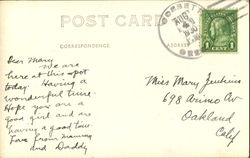 POST CARD
CORRESPONDENCE
ADDRESS
CORBETT
AUG
1930
ORE
1 CENT 1
Dear Mary
We are
here at this spot
today. Having a
wonderful time.
Hope you are a
good girl and are
having a good time
Love from Mammy
and Daddy
Miss Mary Jenkins
698 Arimo Av.
Oakland
Calif